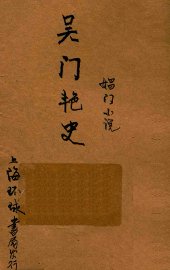 娼门小说
吴门艳史
上海环球书局发行